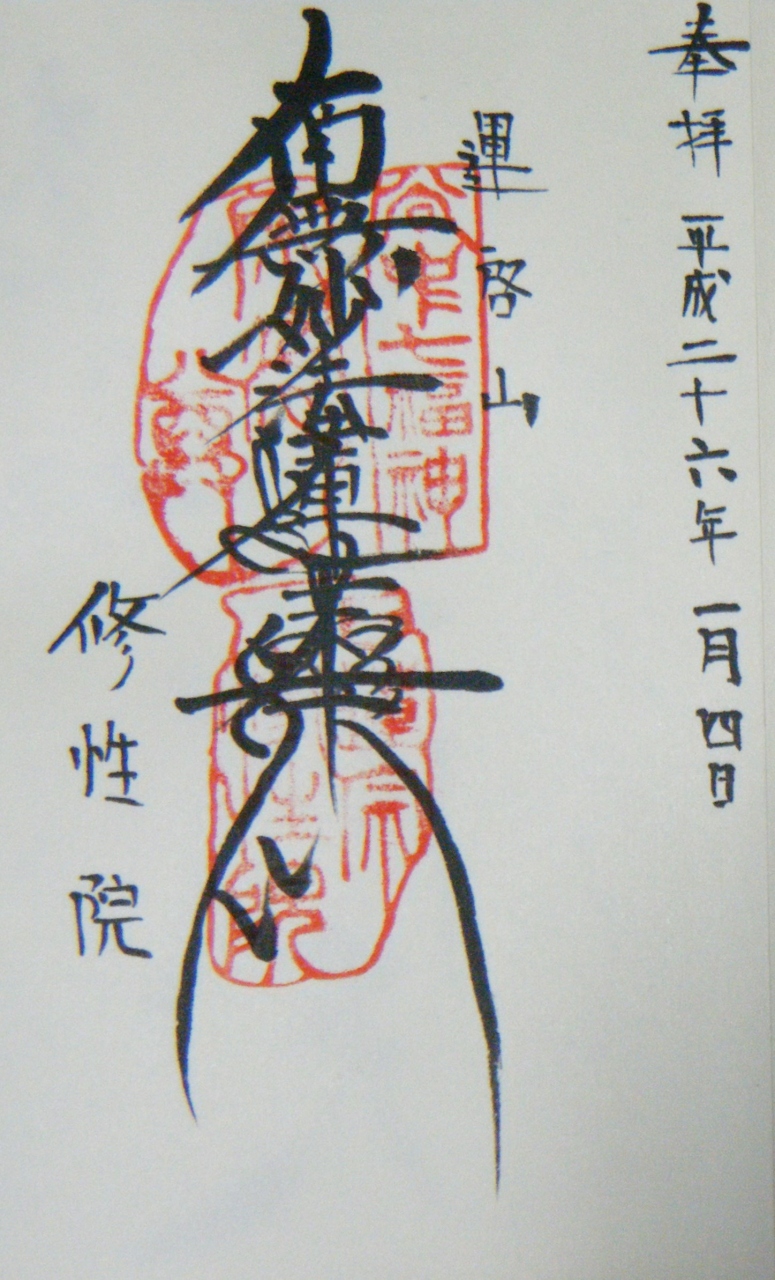 奉拝 平成二十六年 一月四日
運啓山
南無妙法蓮華経
谷中七福神
修性院